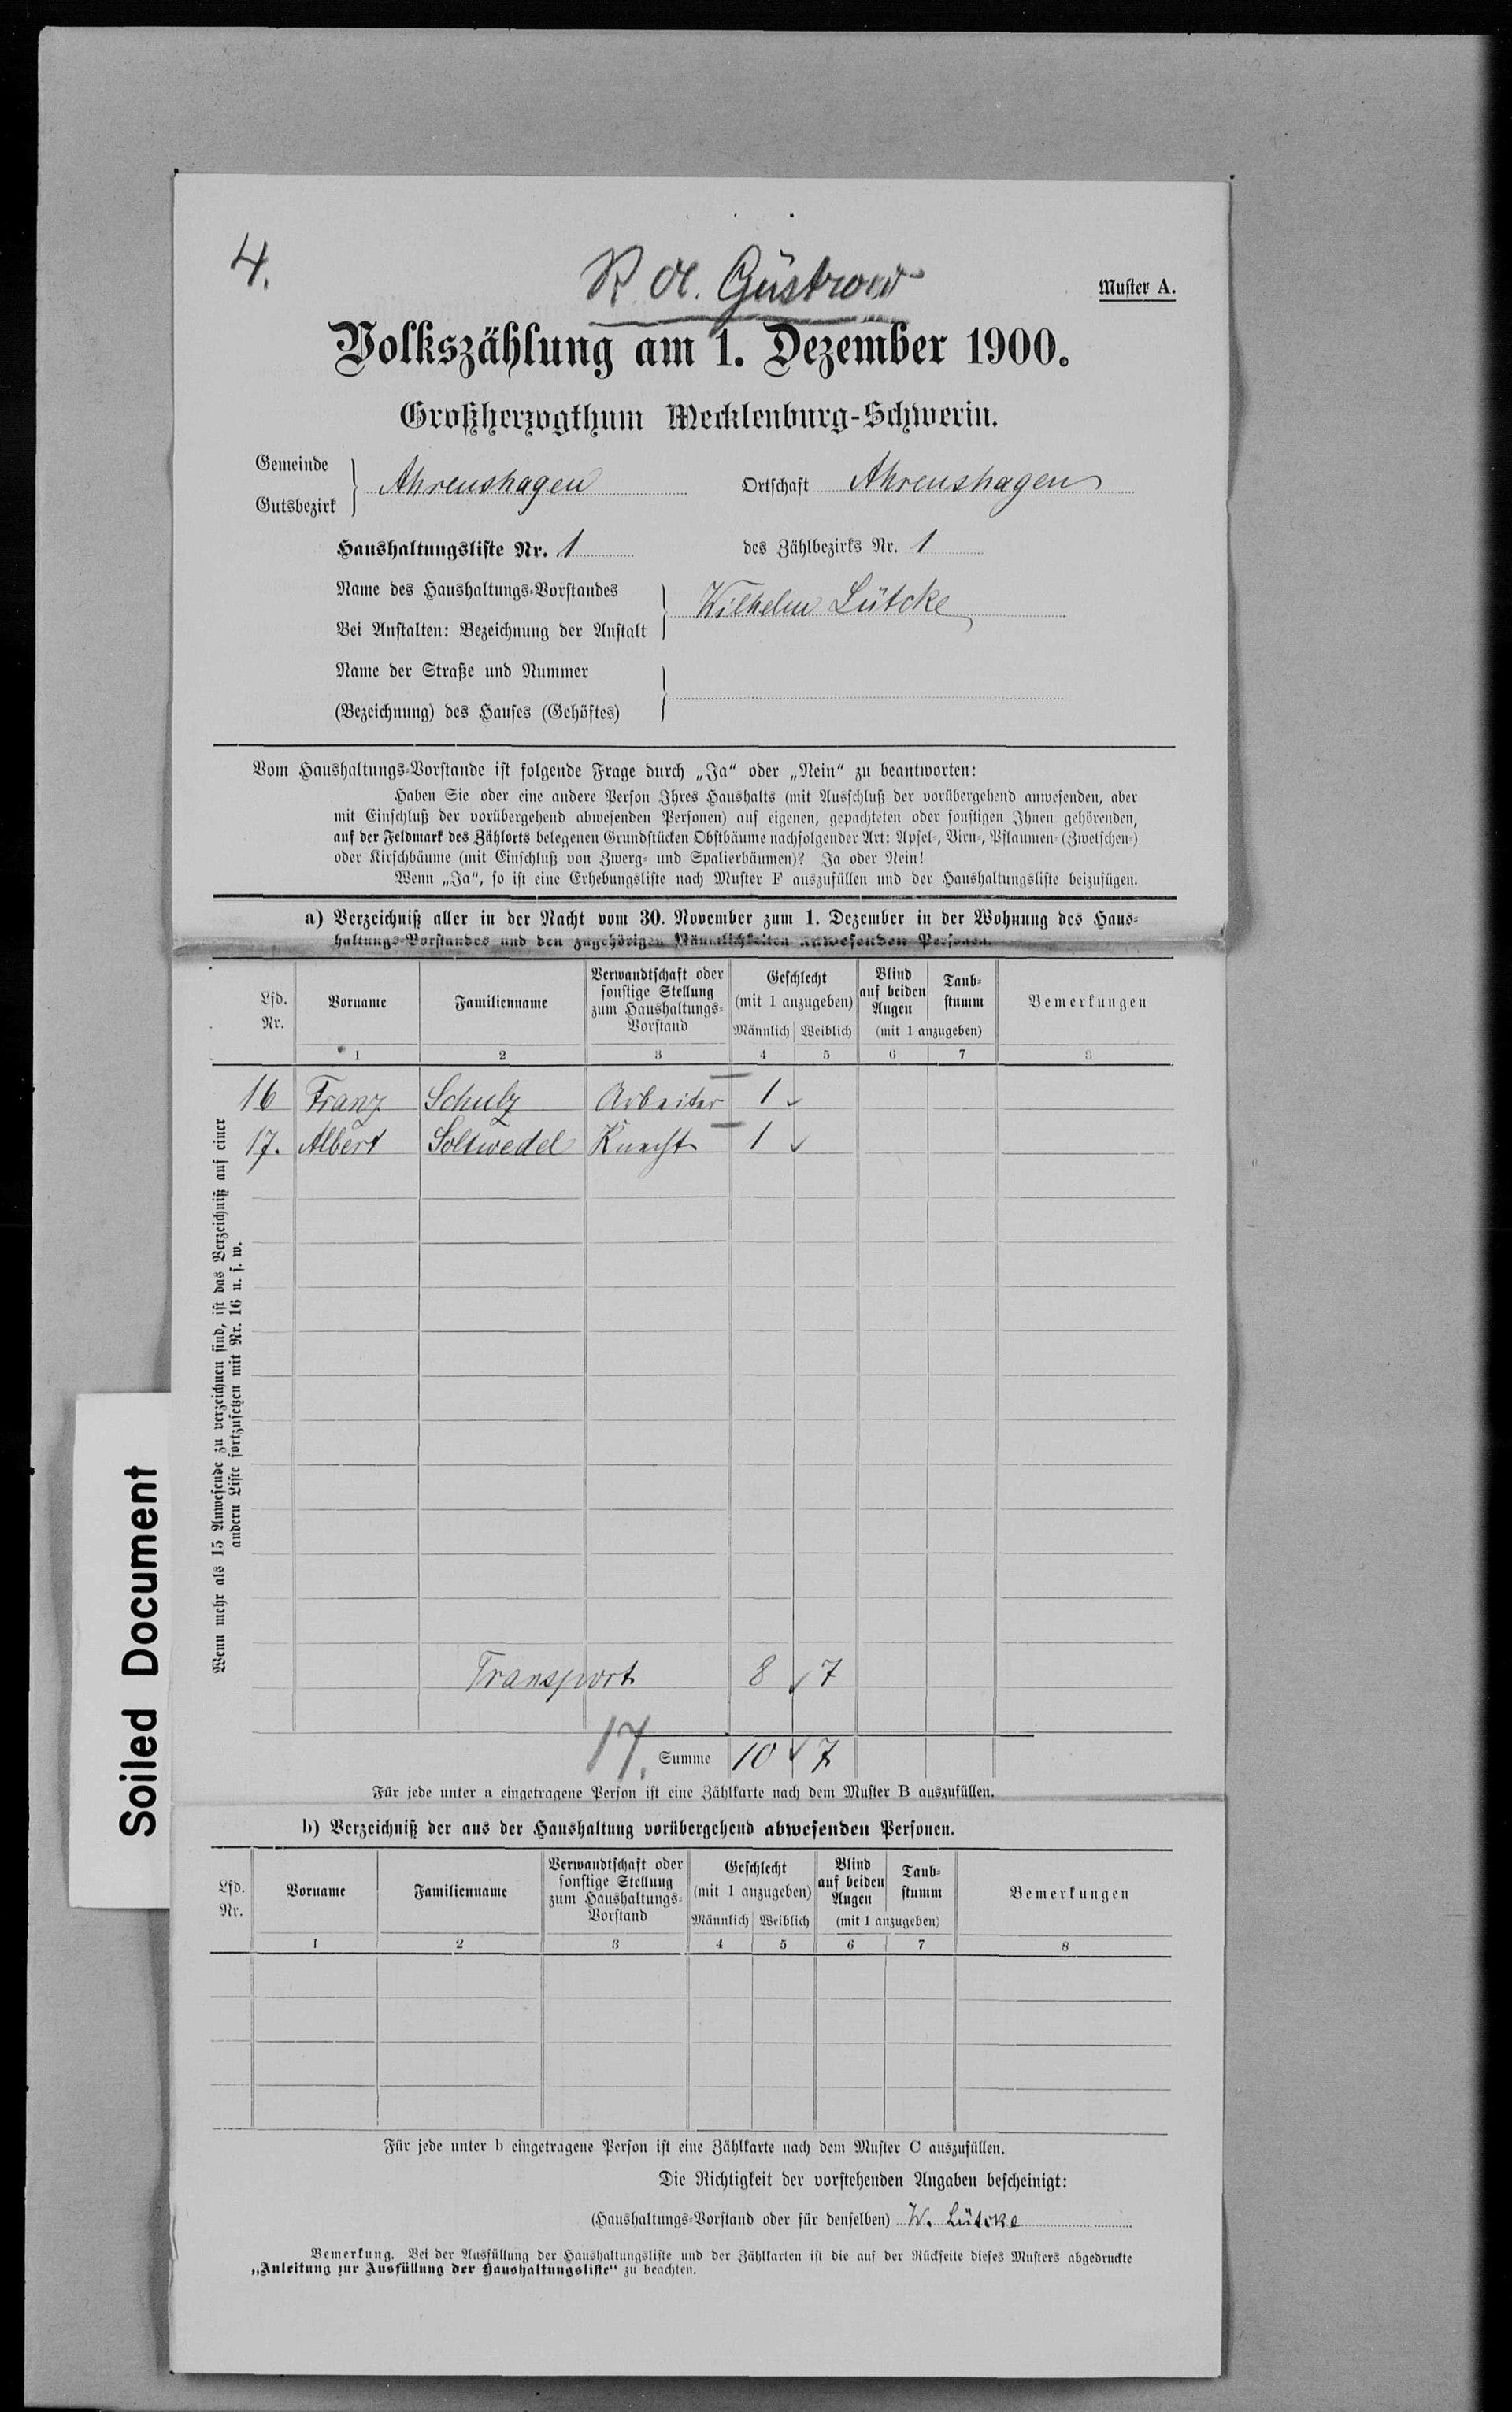 4.
R. A. Güstrow
Muster A.
Volkszählung am 1. Dezember 1900.
Großherzogthum Mecklenburg-Schwerin.
Gemeinde
Gutsbezirk
Ahrenshagen
Ortschaft Ahrenshagen
Haushaltungsliste Nr. 1
des Zählbezirks Nr. 1
Name des Haushaltungs-Vorstandes
Bei Anstalten: Bezeichnung der Anstalt
Wilhelm Lütcke
Name der Straße und Nummer
(Bezeichnung) des Hauses (Gehöftes)
Vom Haushaltungs-Vorstande ist folgende Frage durch „Ja“ oder „Nein“ zu beantworten:
Haben Sie oder eine andere Person Ihres Haushalts (mit Ausschluß der vorübergehend anwesenden, aber
mit Einschluß der vorübergehend abwesenden Personen) auf eigenen, gepachteten oder sonstigen Ihnen gehörenden,
auf der Feldmark des Zählorts belegenen Grundstücken Obstbäume nachfolgender Art: Apfel-, Birn-, Pflaumen- (Zwetschen-)
oder Kirschbäume (mit Einschluß von Zwerg- und Spalierbäumen)? Ja oder Nein!
Wenn „Ja“, so ist eine Erhebungsliste nach Muster F auszufüllen und der Haushaltungsliste beizufügen.
a) Verzeichniß aller in der Nacht vom 30. November zum 1. Dezember in der Wohnung des Haus-
haltungs-Vorstandes und den zugehörigen Räumlichkeiten anwesenden Personen.
Lfd. Nr.
Vorname
Familienname
Verwandtschaft oder sonstige Stellung zum Haushaltungs-Vorstand
Geschlecht (mit 1 anzugeben)
Männlich Weiblich
Blind auf beiden Augen
Taub-stumm
(mit 1 anzugeben)
Bemerkungen
1 2 3 4 5 6 7 8
16 Franz Schulz Arbeiter 1
17. Albert Soltwedel Knecht 1
Wenn mehr als 15 Anwesende zu verzeichnen sind, ist das Verzeichniß auf einer
andern Liste fortzusetzen mit Nr. 16 u. s. w.
Transport 8 7
17. Summe 10 7
Für jede unter a eingetragene Person ist eine Zählkarte nach dem Muster B auszufüllen.
b) Verzeichniß der aus der Haushaltung vorübergehend abwesenden Personen.
Lfd. Nr.
Vorname
Familienname
Verwandtschaft oder sonstige Stellung zum Haushaltungs-Vorstand
Geschlecht (mit 1 anzugeben)
Männlich Weiblich
Blind auf beiden Augen
Taub-stumm
(mit 1 anzugeben)
Bemerkungen
1 2 3 4 5 6 7 8
Für jede unter b eingetragene Person ist eine Zählkarte nach dem Muster C auszufüllen.
Die Richtigkeit der vorstehenden Angaben bescheinigt:
(Haushaltungs-Vorstand oder für denselben) W. Lütcke
Bemerkung. Bei der Ausfüllung der Haushaltungsliste und der Zählkarten ist die auf der Rückseite dieses Musters abgedruckte
„Anleitung zur Ausfüllung der Haushaltungsliste“ zu beachten.
Soiled Document